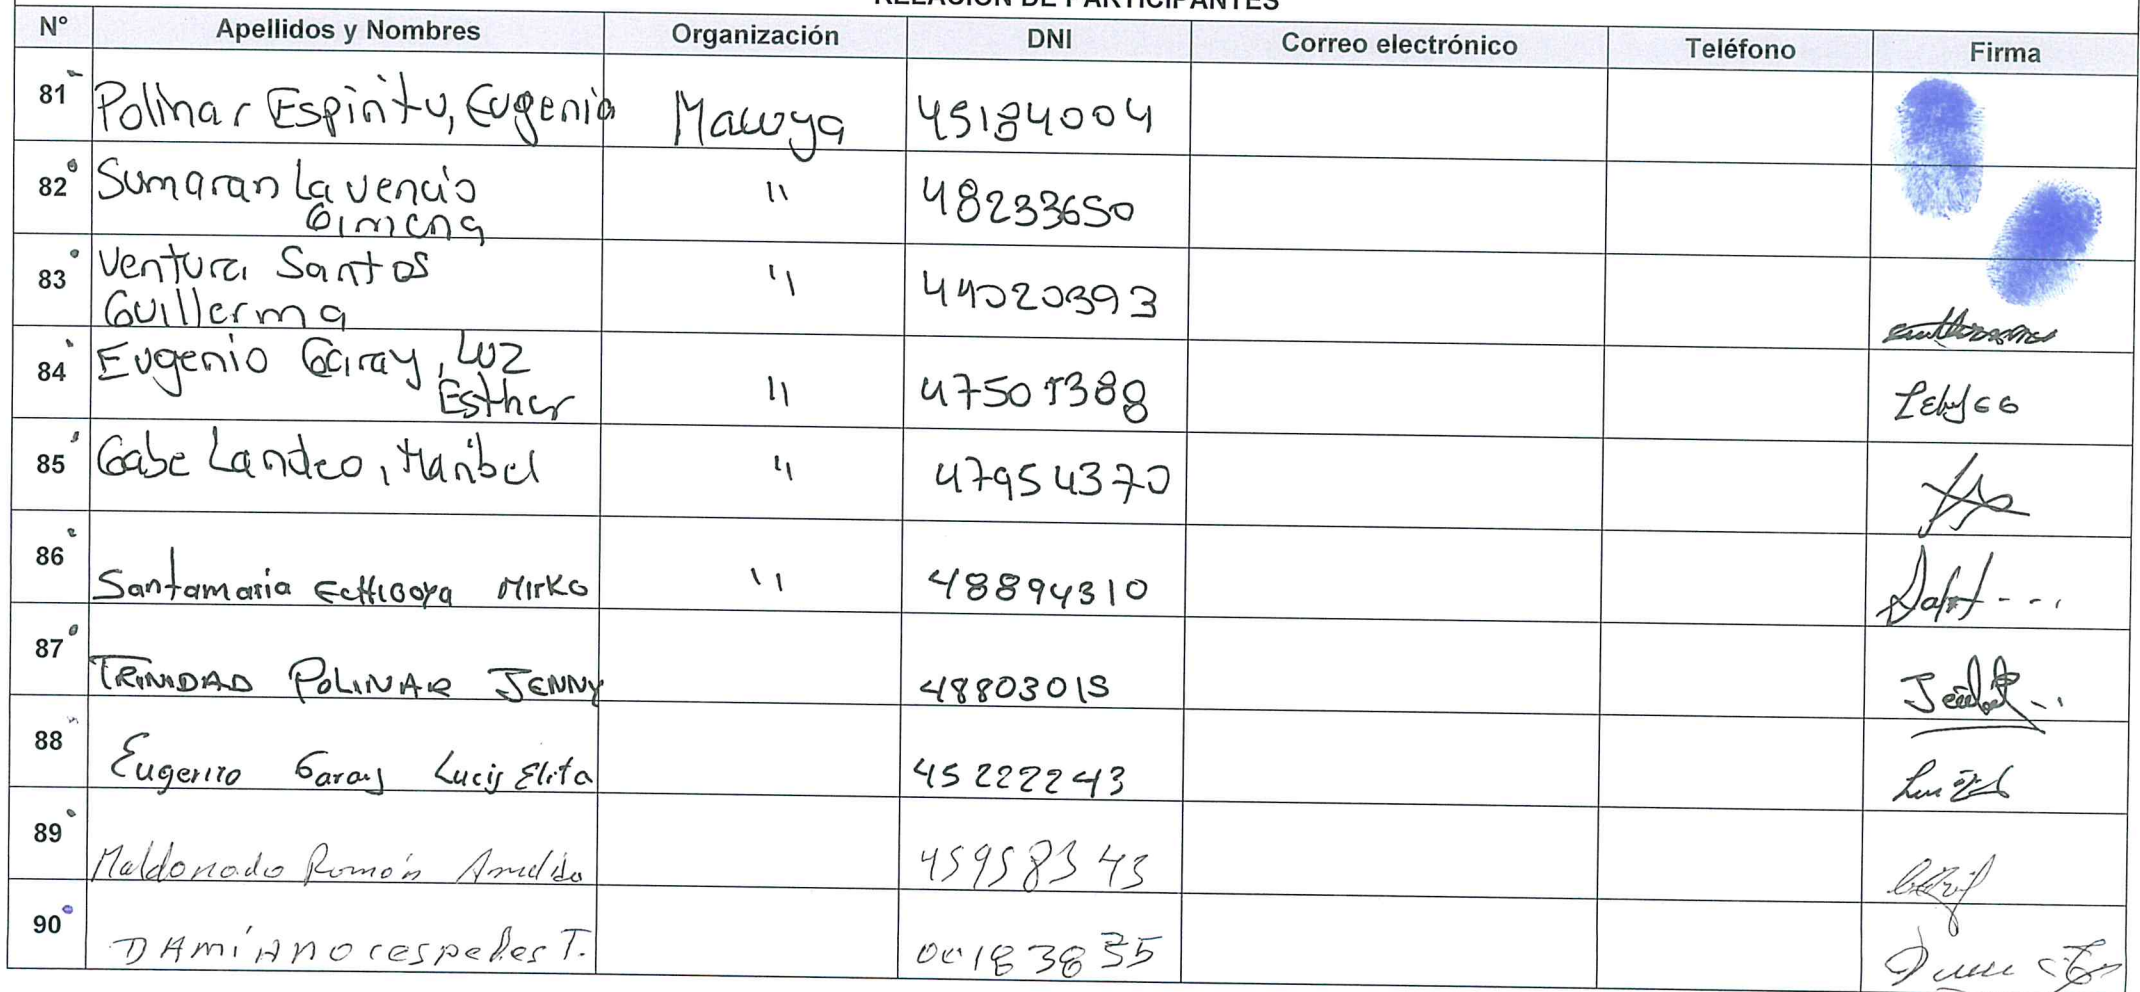 RELACIÓN DE PARTICIPANTES
N° Apellidos y Nombres Organización DNI Correo electrónico Teléfono Firma
81 Polinar Espiritu, Eugenia Mawya 45184004
82 Sumaran Lavencio 11 48233650
Gimena
83 Ventura Santos 11 44020393
Guillerma
84 Eugenio Garay, Luz 11 47501388
Esther
85 Gabe Landeo, Maribel 11 47954370
86 Santamaria Mirko 11 48894310
87 TRINIDAD POLINAR JENNY 48803015
88 Eugenio Garay Lucy Elita 45222243
89 Maldonado Román 45958343
90 DAMiANO cespedes T.